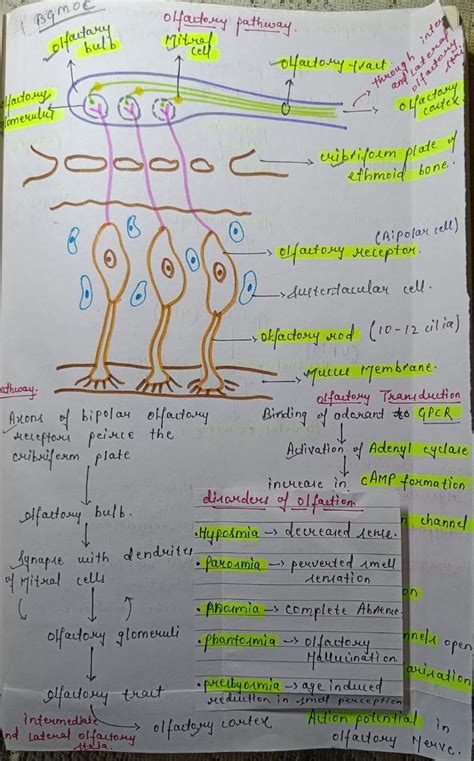 BGMOE
olfactory pathway.
olfactory
bulb
Mitral
cell
olfactory tract
through inter
and lateral
olfactory
stria
olfactory
cortex
olfactory
glomerulus
cribriform plate of
ethmoid bone.
(Bipolar cell)
olfactory receptor.
Sustentacular cell.
olfactory rod (10-12 cilia)
Mucus Membrane.
pathway.
Axons of bipolar olfactory
receptors peirce the
cribriform plate
olfactory bulb.
Synapse with dendrites
of Mitral cells
olfactory glomeruli
olfactory trait
intermediate
and Lateral olfactory
stria.
olfactory cortex
olfactory Transduction
Binding of odorant to GPCR
Activation of Adenyl cyclase
increase in cAMP formation
n channel
on
nnels open
arisation
Action potential in
olfactory Nerve.
disorders of olfaction
• Hyposmia → decreased sense.
• Parosmia → perverted smell
sensation
• Anosmia → complete Absence.
• phantosmia → olfactory
Hallucination
• presbyosmia → age induced
reduction in smell perception